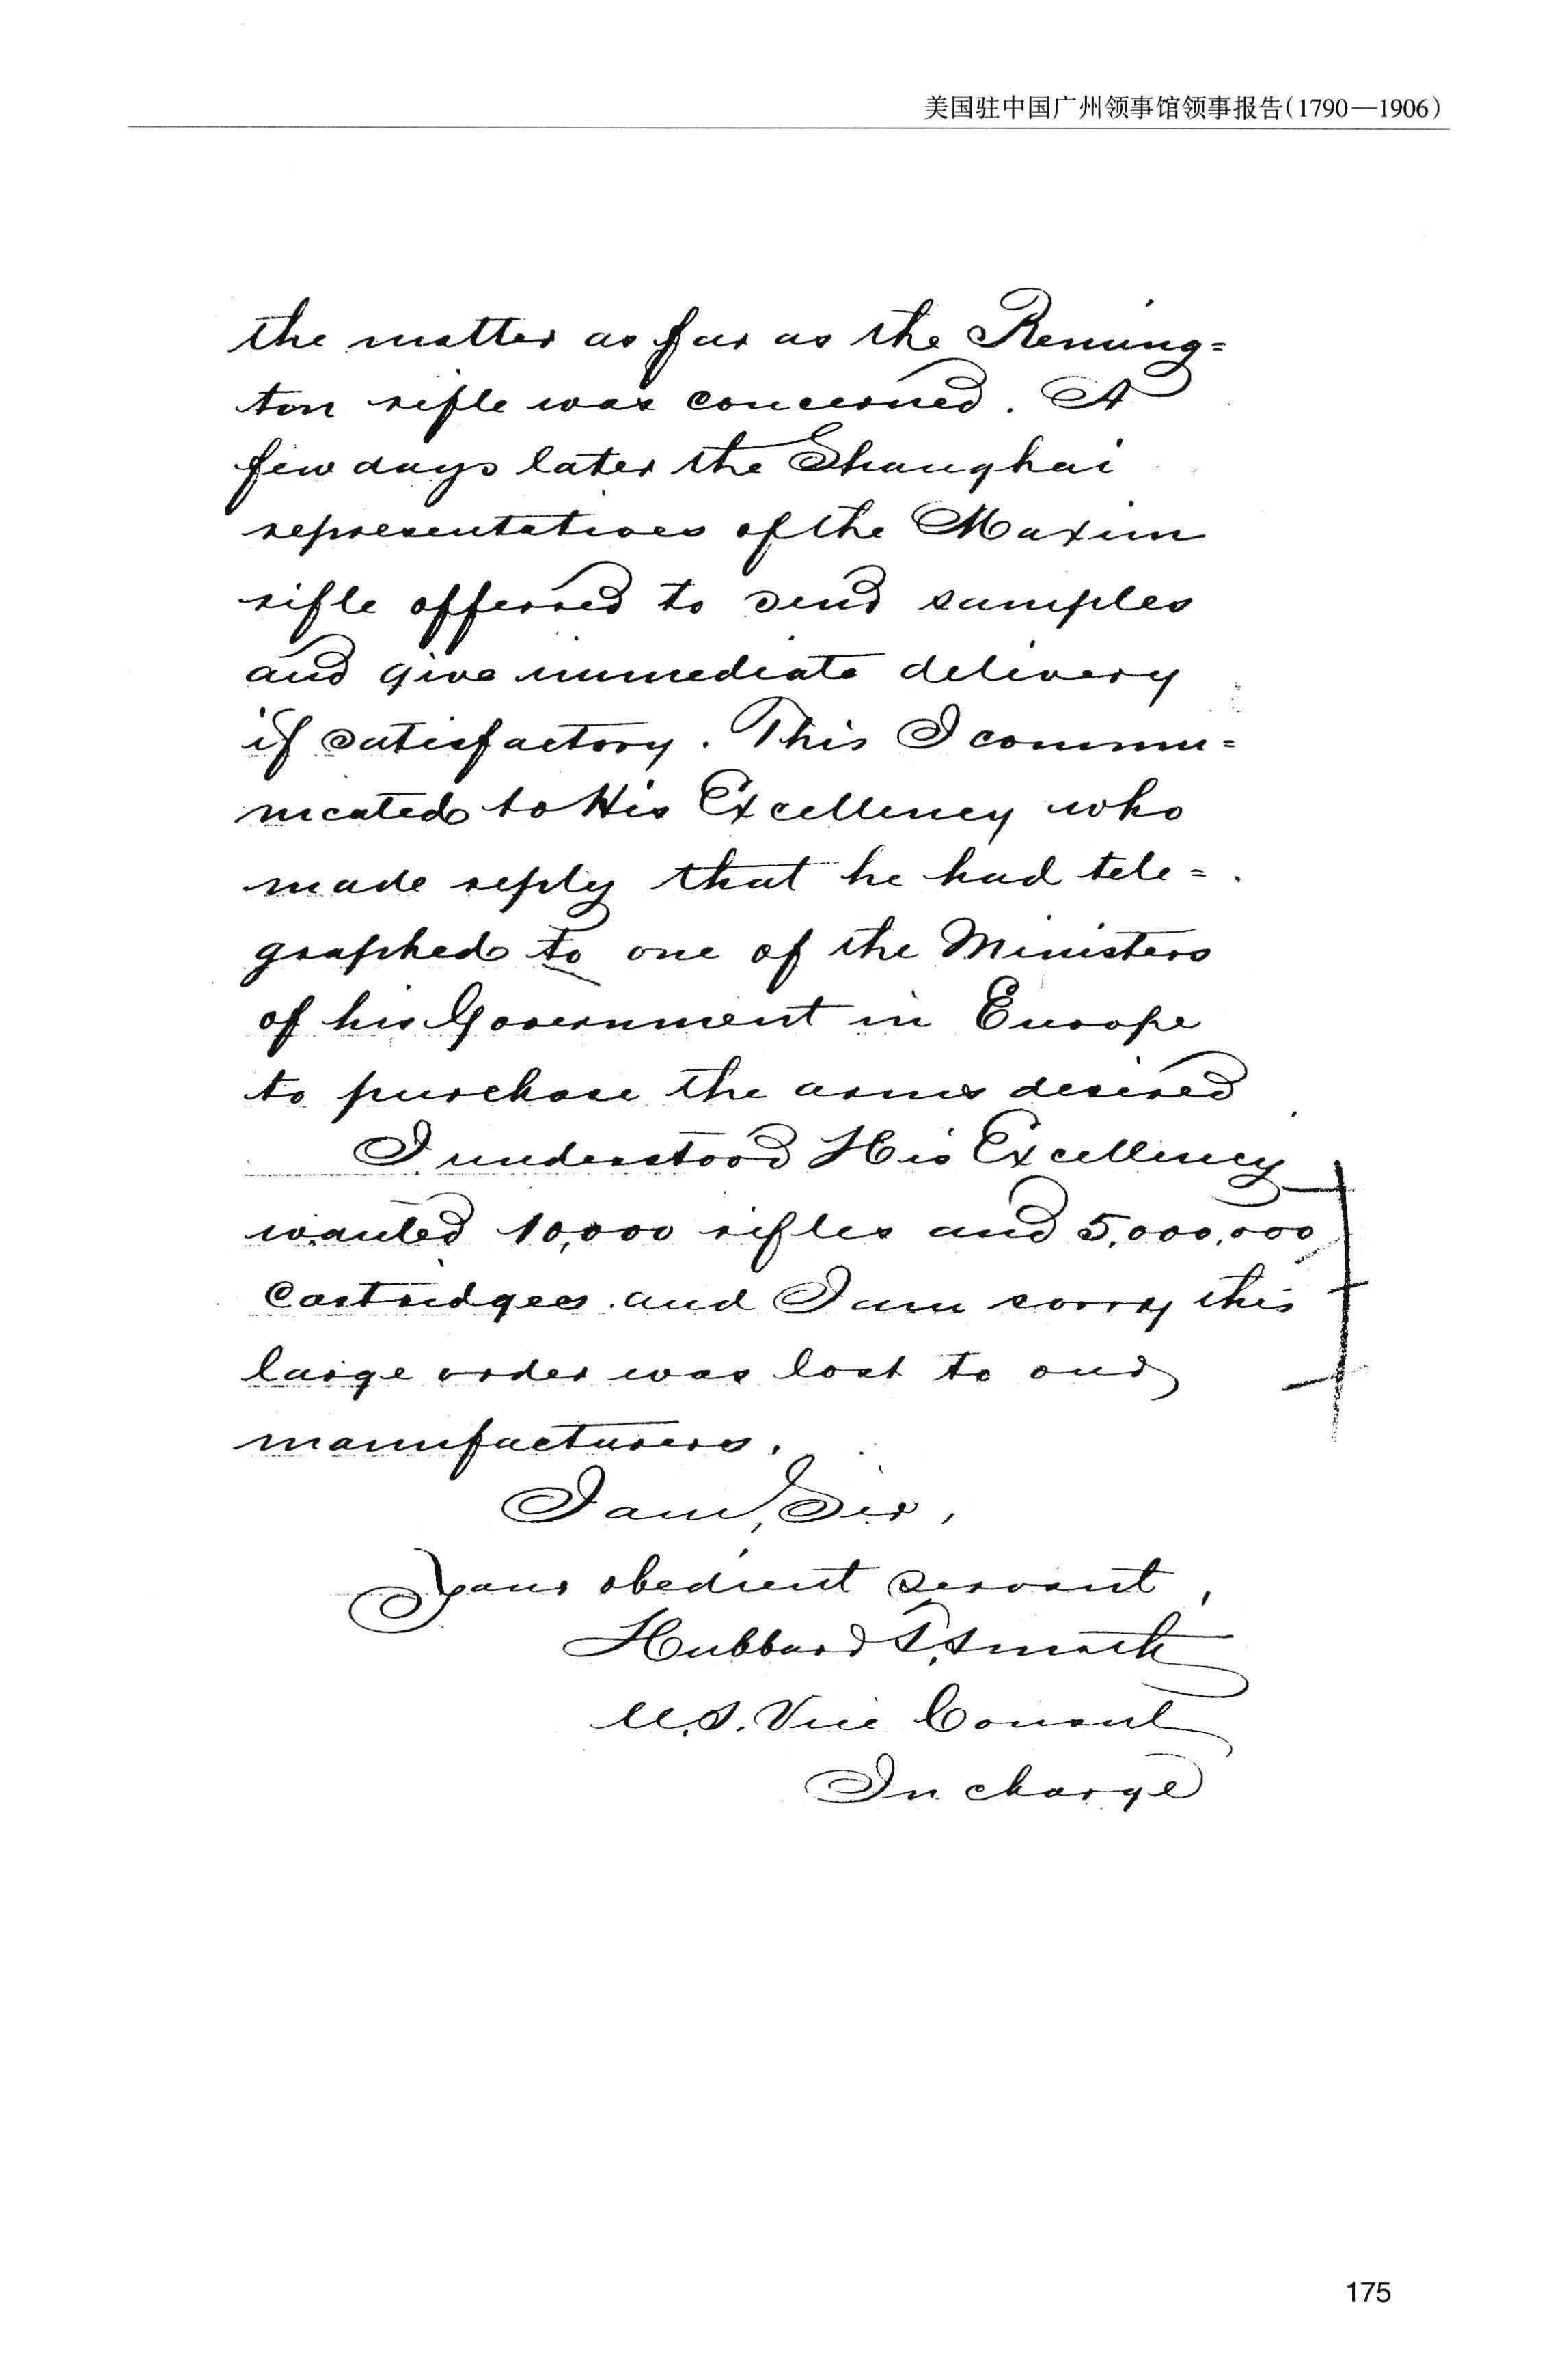 美国驻中国广州领事馆领事报告(1790—1906)
the matter as far as the Reming=
ton rifle was concerned. A
few days later the Shanghai
representatives of the Maxim
rifle offerred to send samples
and give immediate delivery
if satisfactory. This I commu=
nicated to His Excellency who
made reply that he had tele=
graphed to one of the Ministers
of his Government in Europe
to purchase the arms desired
I understood His Excellency
wanted 10,000 rifles and 5,000,000
Cartridges and I am sorry this
large order was lost to our
manufacturers.
I am, Sir,
Your obedient servant,
Hubbard T. Smith
U.S. Vice Consul
In charge
175